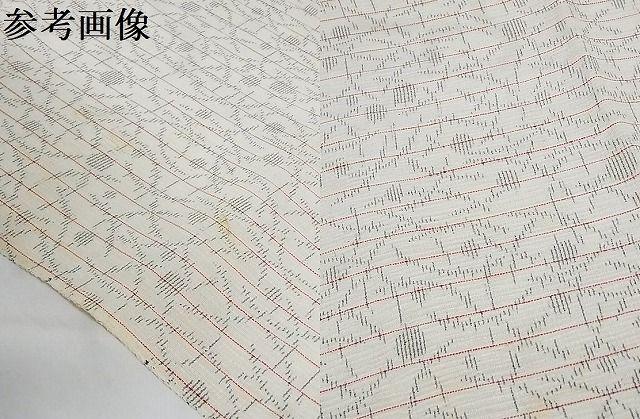 参考画像